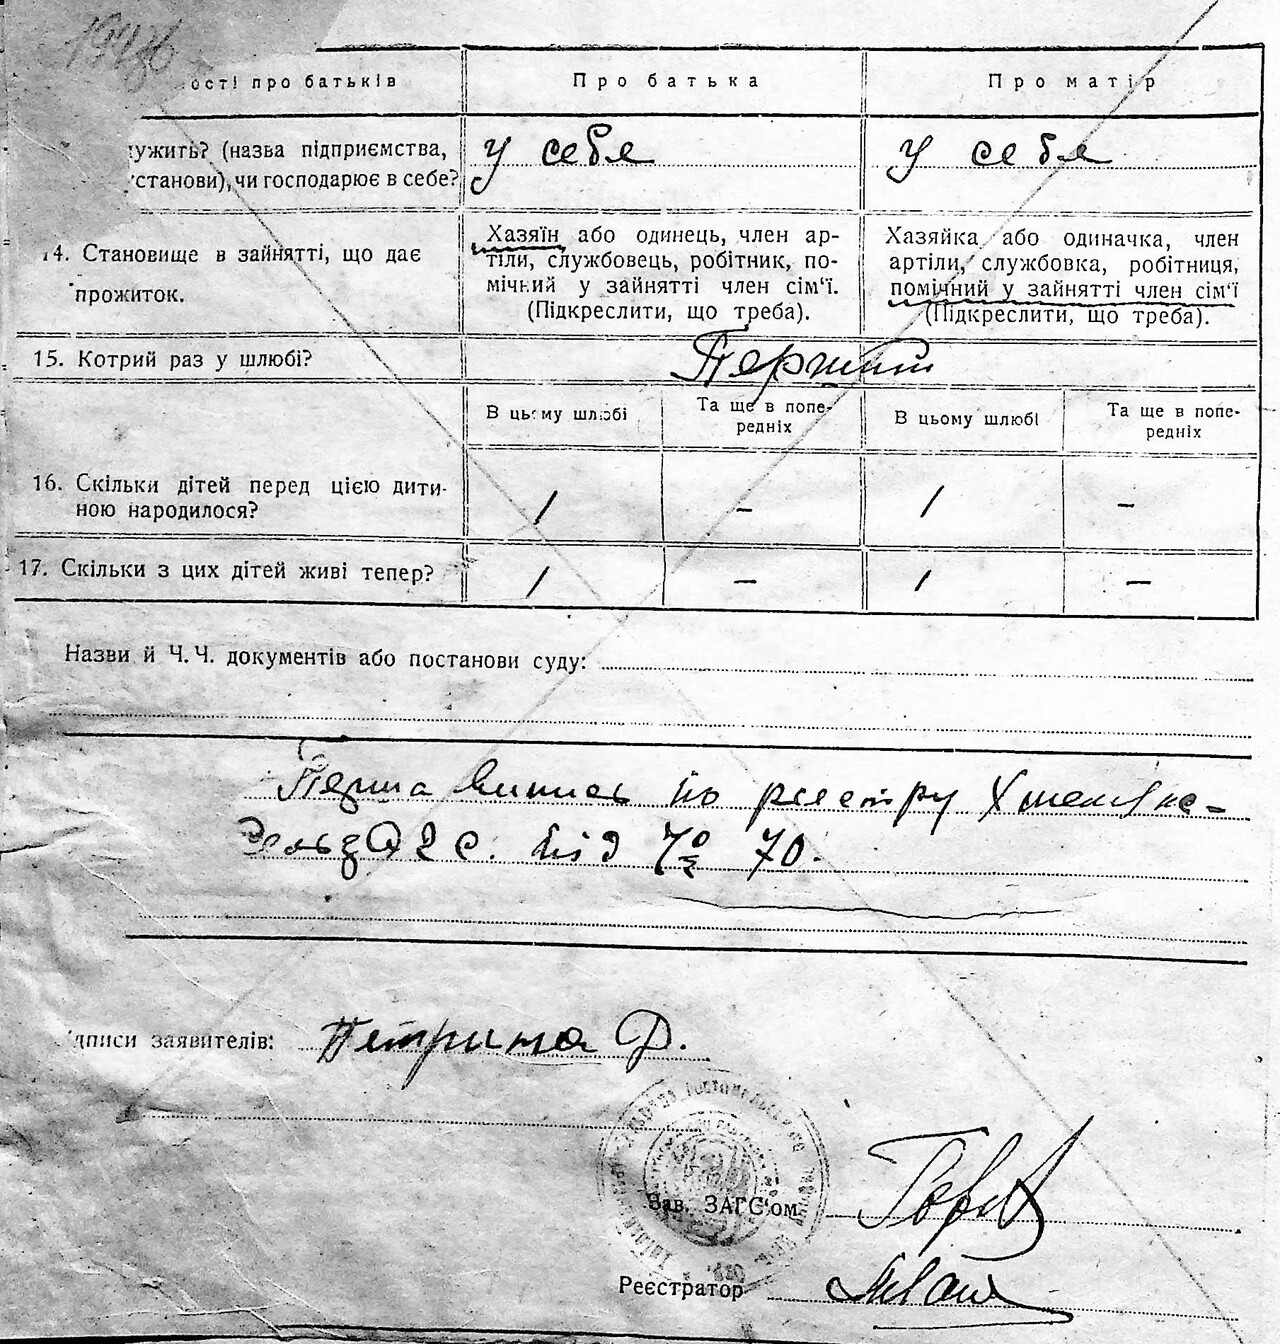 ості про батьків
Про батька
Про матір
ужить? (назва підприємства,
установи), чи господарює в себе?
у себе
у себе
14. Становище в зайнятті, що дає
прожиток.
Хазяїн або одинець, член ар-
тіли, службовець, робітник, по-
мічний у зайнятті член сім'ї.
(Підкреслити, що треба).
Хазяйка або одиначка, член
артіли, службовка, робітниця,
помічний у зайнятті член сім'ї
(Підкреслити, що треба).
15. Котрий раз у шлюбі?
В цьому шлюбі
Та ще в попе-
редніх
В цьому шлюбі
Та ще в попе-
редніх
16. Скільки дітей перед цією дити-
ною народилося?
1
-
1
-
17. Скільки з цих дітей живі тепер?
1
-
1
-
Назви й Ч. Ч. документів або постанови суду:
Перша випись по реєстру
від 70.
дписи заявителів:
Д.
Зав. ЗАГС'ом
Реєстратор